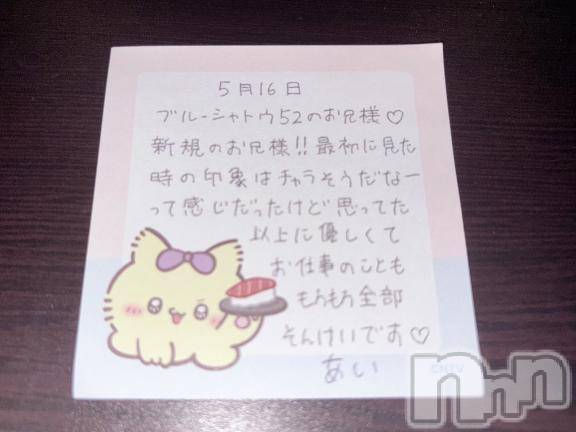 5月16日
ブルーシャトウ52のお兄様♡
新規のお兄様!!最初に見た
時の印象はチャラそうだなー
って感じだったけど思ってた
以上に優しくて
お仕事のことも
もろもろ全部
そんけいです♡
あい
©NTV
nnn